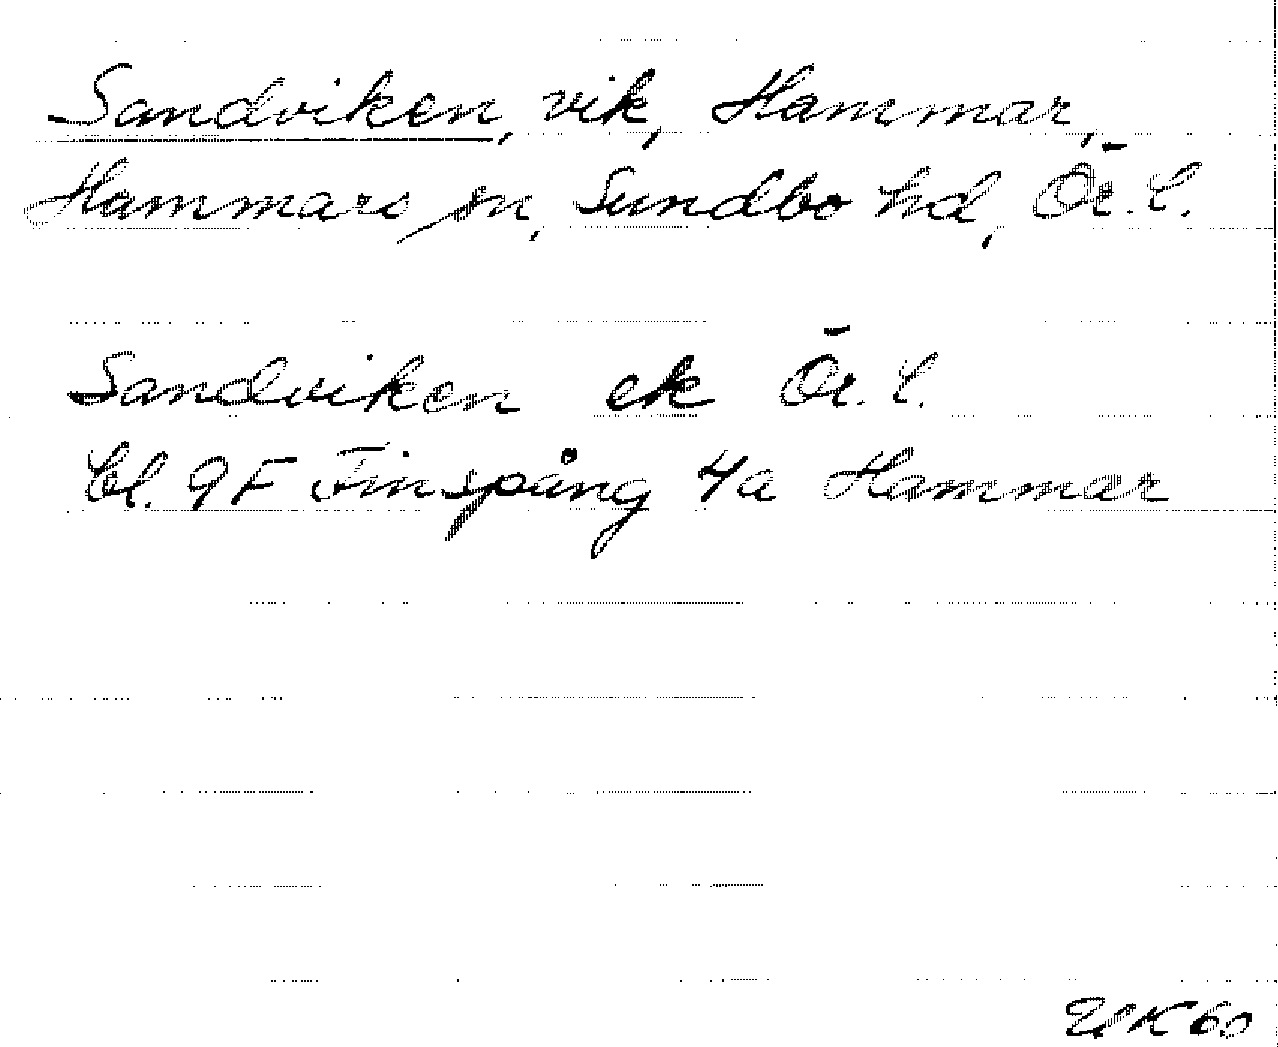 Sandviken, vik, Hammar,
Hammars sn, Sundbo hd, Ör. l.
Sandviken ek Ör. l.
bl. 9F Finspång 4a Hammar